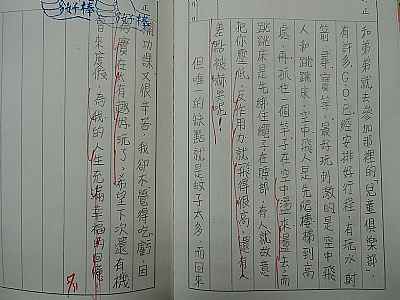 和弟弟就去參加那裡的兒童俱樂部,
有許多G.O已經安排好行程,有玩水、射
箭、尋寶,最好玩刺激的是空中飛
人和跳跳床,空中飛人是先爬樓梯到高
處,再抓住一個竿子在空中盪來盪去,而
跳跳床是先綁住繩子在腰部,有人就故意
把你壓低,反作用力就飛得很高,還有人
差點被嚇哭呢!
但唯一的缺點就是蚊子太多,而回來
功課又很辛苦,我卻不覺得吃虧,因
為實在太有趣好玩了,希望下次還有機
會來度假,為我的人生充滿幸福的回憶
好棒
好棒